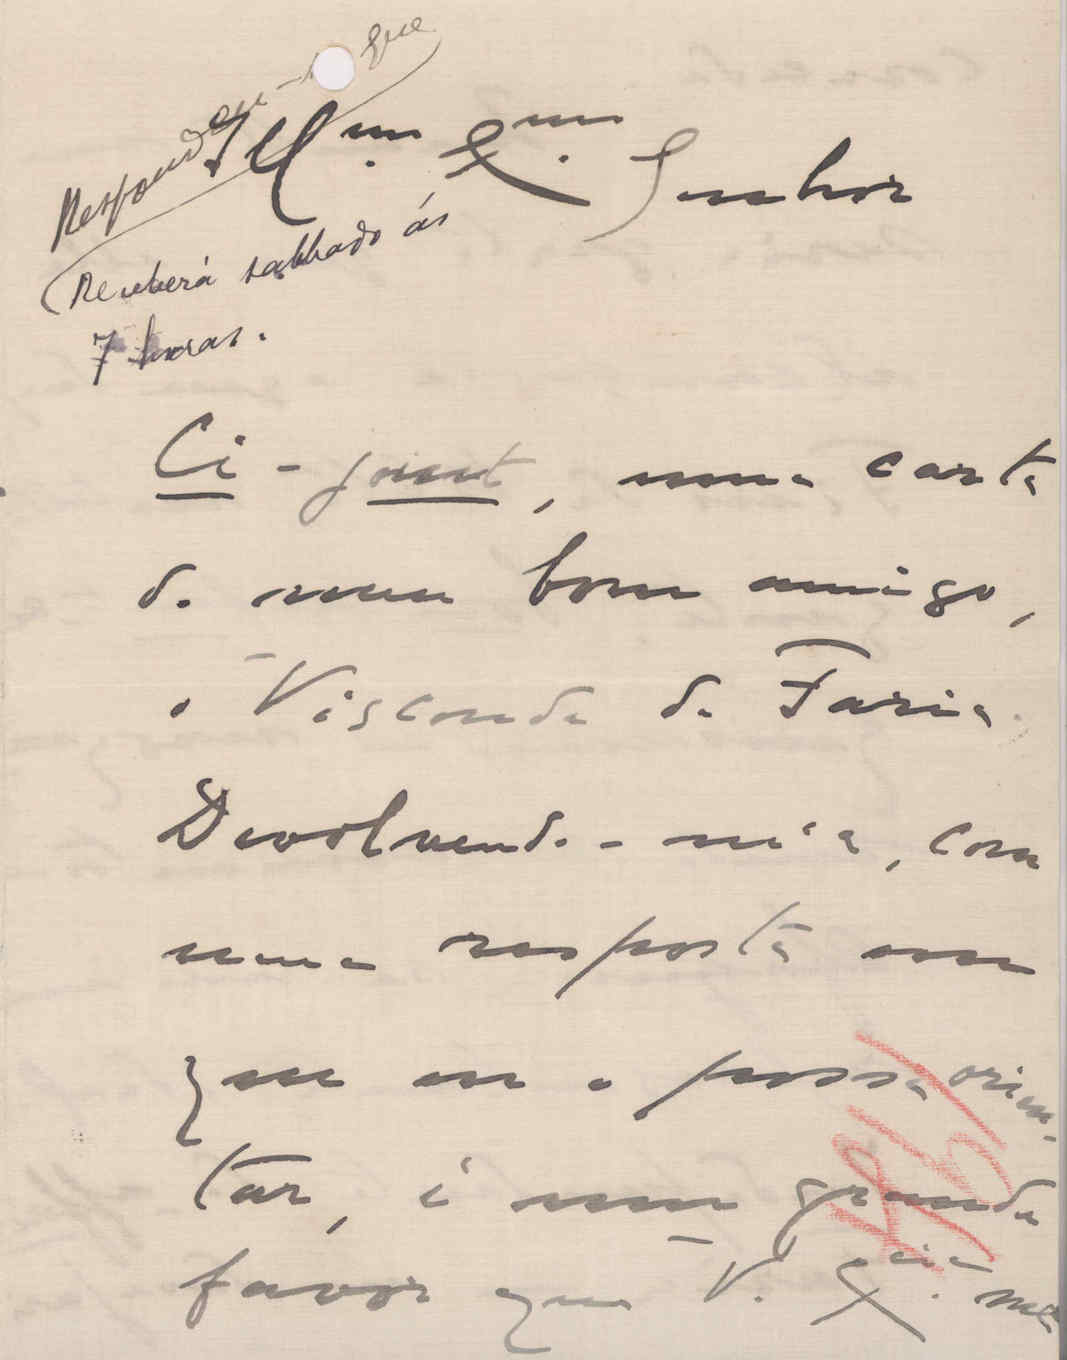 Respondeu-se que
Receberá sabbado ás
7 horas.
Ill.mo Ex.mo Senhor
Ci-joint, uma carta
do meu bom amigo,
o Visconde de Faria.
Devolvendo-m'a, com
uma resposta em
que eu o possa orien-
tar, é um grande
favor que V. Ex.cia me